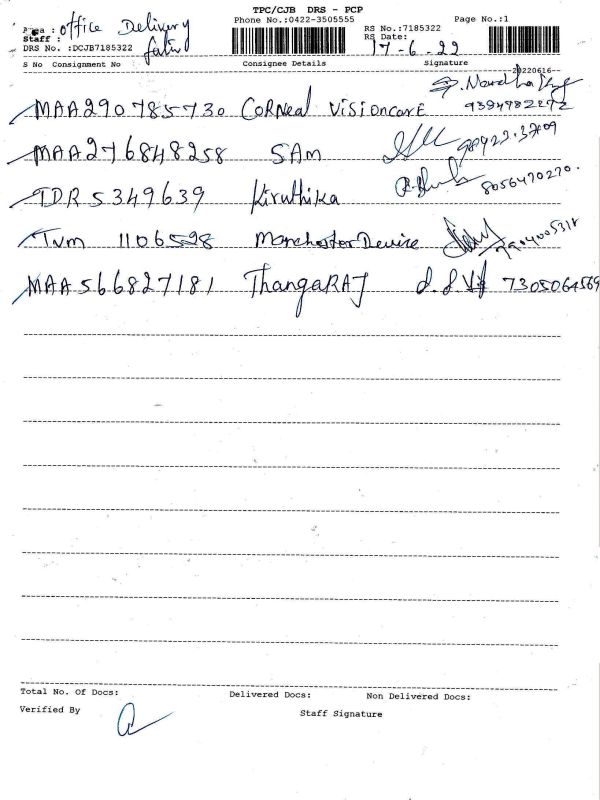 TPC/CJB DRS - PCP
Phone No.:0422-3505555 Page No.:1
Area : office Delivery
RS No.:7185322
Staff :
RS Date: 17-6-22
DRS No. :DCJB7185322
S No Consignment No Consignee Details Signature
20220616
MAA290785730 CORNeal VISIONCARE 9394982272
MAA276848258 SAm
TDR5349639 Kiruthika 8056470270.
Tvm 1106528 Manchester Devine 7904005318
MAA566827181 ThangaRAJ 7305064569
Total No. Of Docs: Delivered Docs: Non Delivered Docs:
Verified By Staff Signature